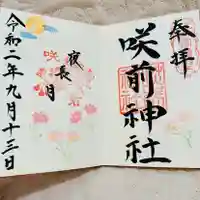 奉拝
咲前神社
夜長月
令和二年九月十三日